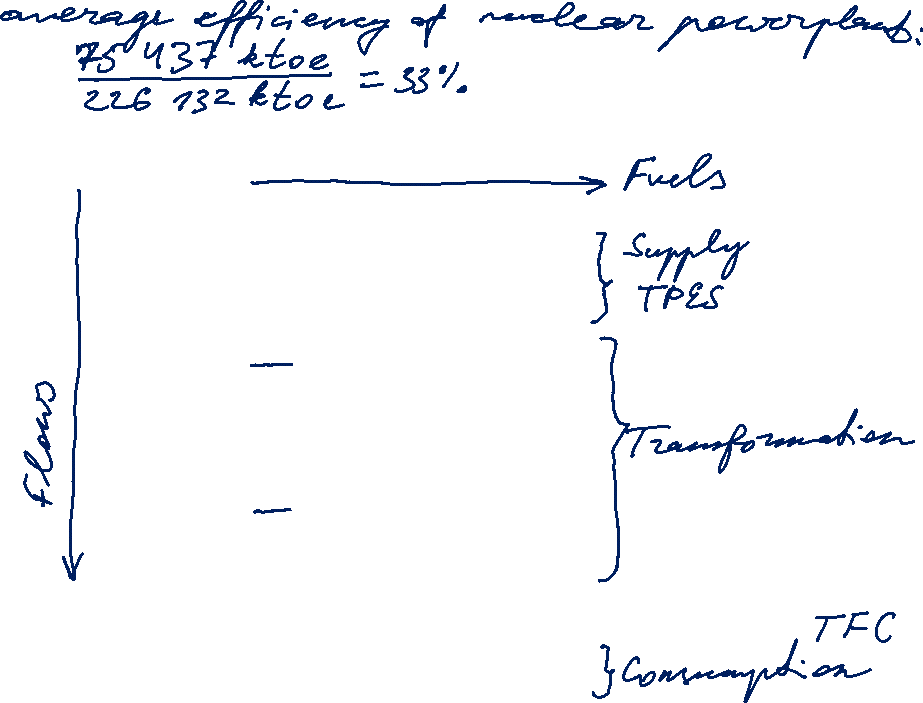 average efficiency of nuclear powerplant:
75 437 ktoe
226 132 ktoe = 33%.
Fuels
Supply
TPES
Flows
Transformation
TFC
Consumption